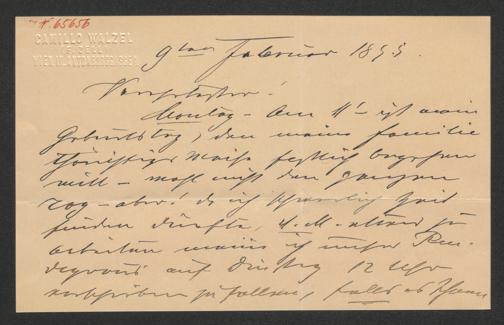 N 65656
CAMILLO WALZEL
9ten Februar 1893.
Verehrtester!
Montag – den 11' – ist mein
Geburtstag, den meine Familie
thörichter Weise festlich begehen
will – wohl nicht den ganzen
Tag – aber da ich schwerlich Zeit
finden dürfte, u. M. etwas zu
arbeiten meine ich unser Ren-
dezvous auf Dinstag 12 Uhr
verschieben zu sollen, falls es Ihnen